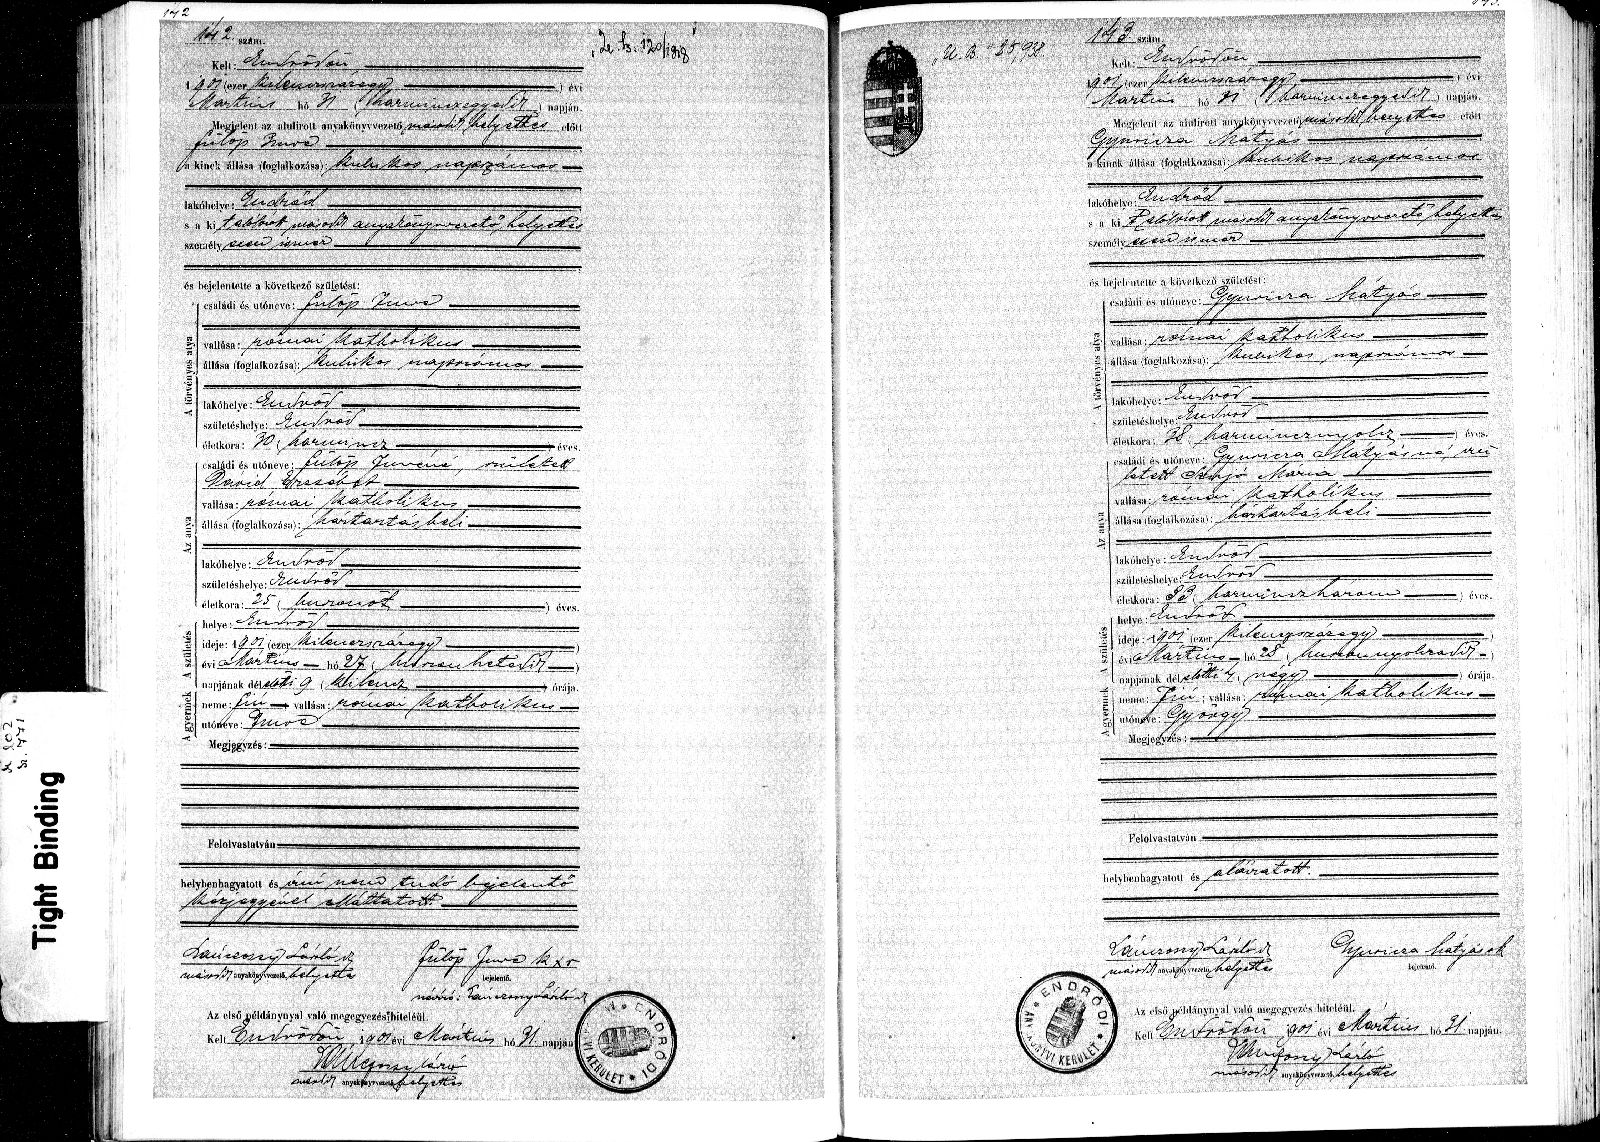 142
142 szám.
Kelt: Endrődön
1901 (ezer kilenczszázegy) évi
Martius hó 31 (harminczegyedik) napján.
Megjelent az alulirott anyakönyvvezető másodk helyettes előtt
Fülöp Imre
a kinek állása (foglalkozása): kubikos napszámos
lakóhelye: Endrőd
s a ki alólirott másodk anyakönyvvezető helyettes
személyesen ismer
és bejelentette a következő születést:
A törvényes atya
családi és utóneve: Fülöp Imre
vallása: római katholikus
állása (foglalkozása): kubikos napszámos
lakóhelye: Endrőd
születéshelye: Endrőd
életkora: 30 (harmincz) éves.
Az anya
családi és utóneve: Fülöp Imréné, született
Dávid Erzsébet
vallása: római katholikus
állása (foglalkozása): háztartásbeli
lakóhelye: Endrőd
születéshelye: Endrőd
életkora: 25 (huszonöt) éves.
A születés
helye: Endrőd
ideje: 1901 (ezer kilenczszázegy)
évi Martius hó 27 (huszonhetedik)
napjának délelőtti 9 (kilencz) órája.
A gyermek
neme: Fiú; vallása: római katholikus
utóneve: Imre
Megjegyzés:
Felolvastatván
helybenhagyatott és írni nem tudó bejelentő
kézjegyével elláttatott
Lánczony László
másodk anyakönyvvezető helyettes
Fülöp Imre k x v
bejelentő.
névíró: Lánczony László
Az első példánynyal való megegyezés hiteléül.
Kelt Endrődön, 1901 évi Martius hó 31. napján
másodk anyakönyvvezető helyettes
ENDRŐDI ANYAKÖNYVI KERÜLET
143.
143 szám.
Kelt: Endrődön
1901 (ezer kilenczszázegy) évi
Martius hó 31 (harminczegyedik) napján.
Megjelent az alulirott anyakönyvvezető másodk helyettes előtt
Gyuricza Mátyás
a kinek állása (foglalkozása): kubikos napszámos
lakóhelye: Endrőd
s a ki alólirott másodk anyakönyvvezető helyettes
személyesen ismer
és bejelentette a következő születést:
A törvényes atya
családi és utóneve: Gyuricza Mátyás
vallása: római katholikus
állása (foglalkozása): kubikos napszámos
lakóhelye: Endrőd
születéshelye: Endrőd
életkora: 38 (harmincznyolcz) éves.
Az anya
családi és utóneve: Gyuricza Mátyásné, szü
letett Mária
vallása: római katholikus
állása (foglalkozása): háztartásbeli
lakóhelye: Endrőd
születéshelye: Endrőd
életkora: 33 (harminczhárom) éves.
A születés
helye: Endrőd
ideje: 1901 (ezer kilenczszázegy)
évi Martius hó 28 (huszonnyolczadik)
napjának délelőtti 4 (négy) órája.
A gyermek
neme: Fiú; vallása: római katholikus
utóneve: György
Megjegyzés:
Felolvastatván
helybenhagyatott és aláiratott.
Lánczony László
másodk anyakönyvvezető helyettes
Gyuricza Mátyás
bejelentő.
Az első példánynyal való megegyezés hiteléül.
Kelt Endrődön 1901 évi Martius hó 31 napján.
másodk anyakönyvvezető helyettes
ENDRŐDI ANYAKÖNYVI KERÜLET
Tight Binding